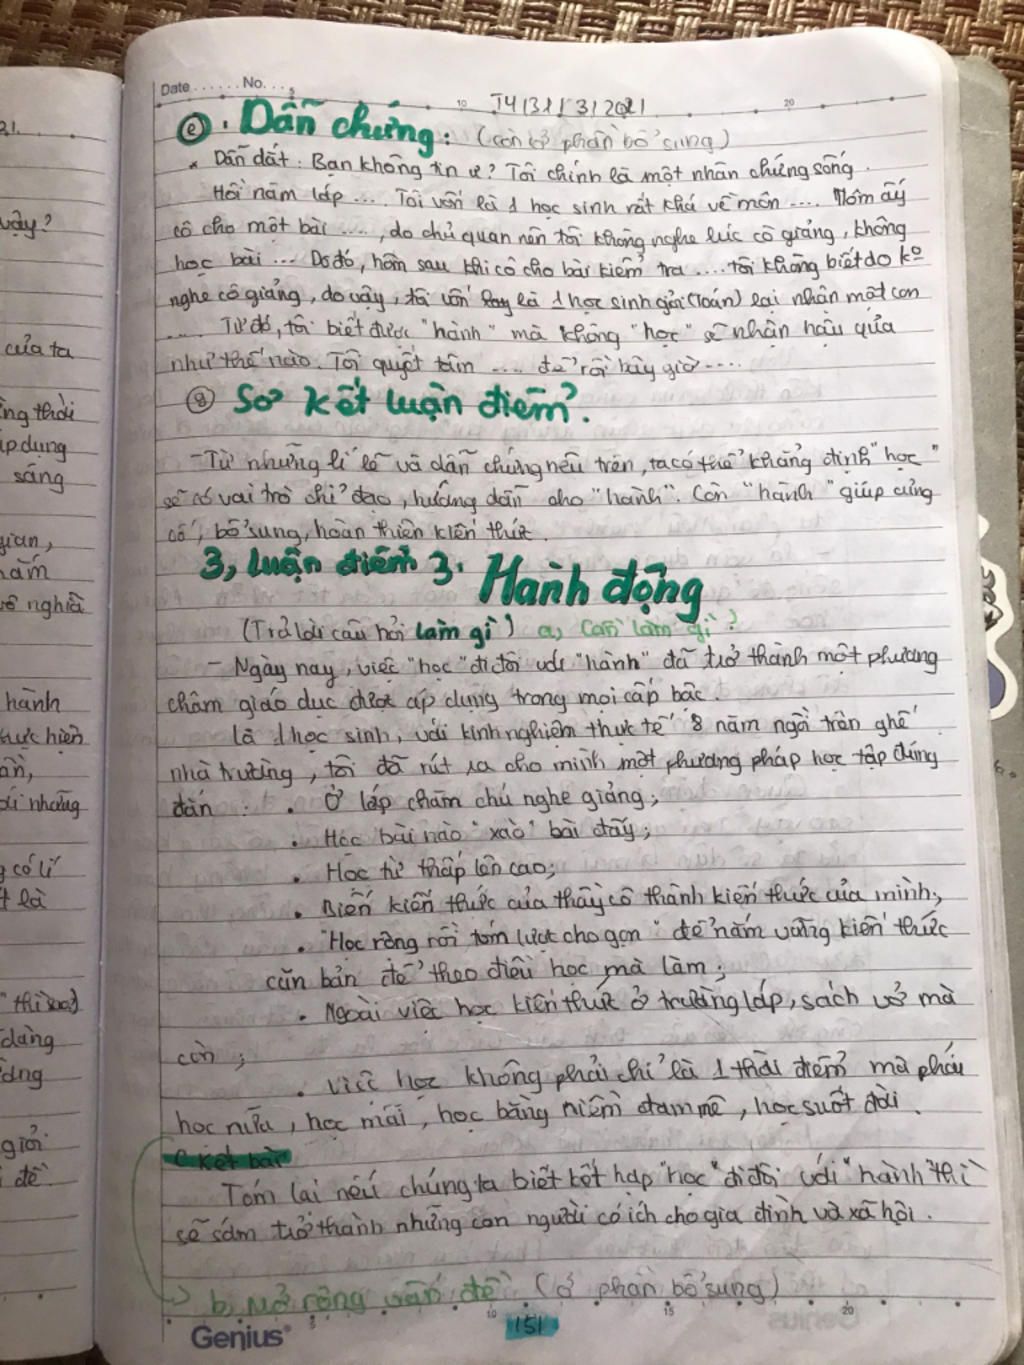 21.
vậy?
của ta
ng thời
áp dụng
sáng
gian,
năm
vô nghĩa
hành
thực hiện
ân,
với những
g có lí
t là
" thì sao?
dàng
ường
giỏi
đề.
Date ...... No. ...
10 T4/31/3/2021 20
e. Dẫn chứng: (còn ở phần bổ sung)
* Dẫn dắt: Bạn không tin ư? Tôi chính là một nhân chứng sống.
Hồi năm lớp .... Tôi vốn là 1 học sinh rất khá về môn .... Hôm ấy
cô cho một bài ...., do chủ quan nên tôi không nghe lúc cô giảng, không
học bài ... Do đó, hôm sau khi cô cho bài kiểm tra .... tôi không biết do ko
nghe cô giảng, do vậy, tôi vốn là 1 học sinh giỏi (Toán) lại nhận một con
.... Từ đó, tôi biết được "hành" mà không "học" sẽ nhận hậu qủa
như thế nào. Tôi quyết tâm .... để rồi bây giờ ....
g Sơ kết luận điểm.
- Từ những lí lẽ và dẫn chứng nêu trên, ta có thể khẳng định "học"
sẽ có vai trò chỉ đạo, hướng dẫn cho "hành". Còn "hành" giúp củng
cố, bổ sung, hoàn thiện kiến thức.
3, Luận điểm 3. Hành động
(Trả lời câu hỏi làm gì) a, Cần làm gì?
- Ngày nay, việc "học" đi đôi với "hành" đã trở thành một phương
châm giáo dục được áp dụng trong mọi cấp bậc.
Là 1 học sinh, với kinh nghiệm thực tế 8 năm ngồi trên ghế
nhà trường, tôi đã rút ra cho mình một phương pháp học tập đúng
đắn : . Ở lớp chăm chú nghe giảng;
. Học bài nào "xào" bài đấy;
. Học từ thấp lên cao;
. Biến kiến thức của thầy cô thành kiến thức của mình;
. "Học rộng rồi tóm lược cho gọn" để nắm vững kiến thức
căn bản để theo điều học mà làm;
. Ngoài việc học kiến thức ở trường lớp, sách vở mà
còn ;
. Việc học không phải chỉ là 1 thời điểm mà phải
học nữa, học mãi, học bằng niềm đam mê, học suốt đời.
C Kết bài
Tóm lại nếu chúng ta biết kết hợp "học" đi đôi với "hành" thì
sẽ sớm trở thành những con người có ích cho gia đình và xã hội.
→ b, Mở rộng vấn đề (ở phần bổ sung)
5 10 15 20
Genius 151